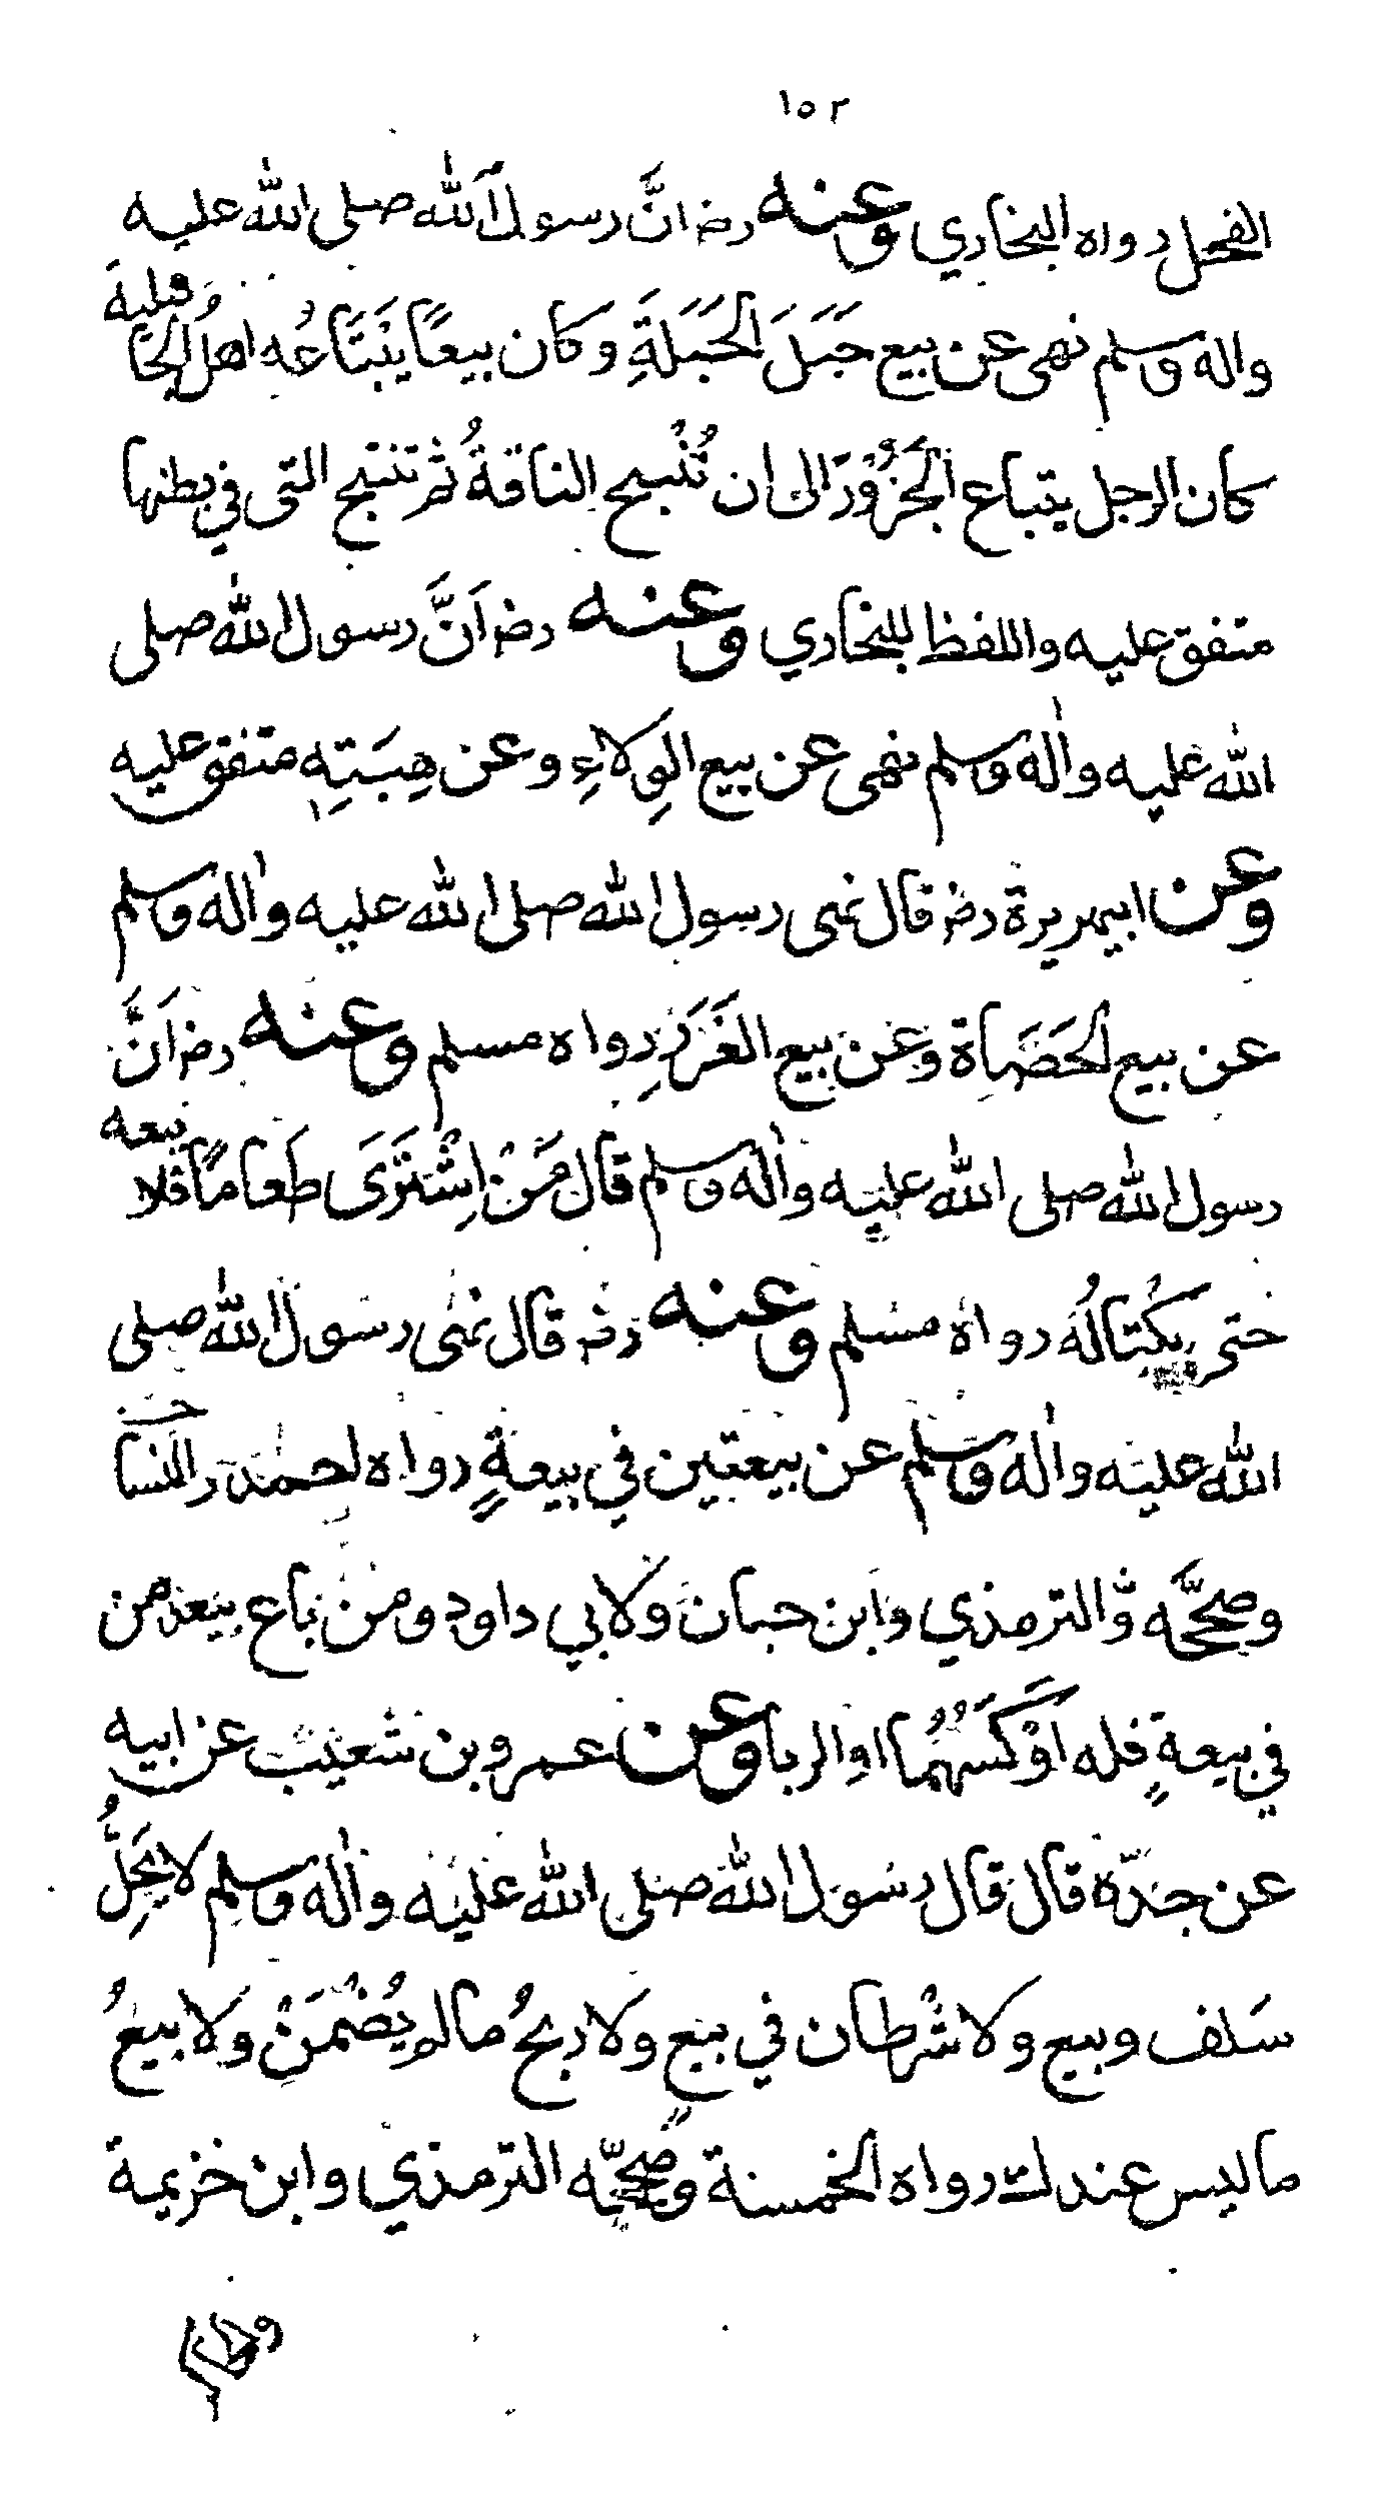 ١٥٢
الفحل رواه البخاري وعنه رضـ انَّ رسول الله صلى الله عليه
واله وسلم نهى عن بيع حَبَلَ الحَبَلَةِ وكان بيعًا يَبْتَاعُه اهلُ الجا
هلية
كان الرجل يبتاع الجَزُوْرَ الى ان تُنْتج الناقةُ ثم تنتج التى في بطنها
متفق عليه واللفظ للبخاري وعنه رضـ اَنَّ رسول الله صلى
الله عليه واٰله وسلم نهى عن بيع الوِلاءِ وعن هِبَتِهِ متفق عليه
وعن ابيهريرة رضـ قال نهى رسول الله صلى الله عليه واٰله وسلم
عن بيع الحَصَاة وعن بيع الغَرَرِ رواه مسلم وعنه رضـ اَنَّ
رسول الله صلى الله عليه واٰله وسلم قال مَنْ اِشْتَرَى طَعامًا فلا
يبعه
حتى يكْتالُه رواه مسلم وعنه رضـ قال نهى رسول الله صلى
الله عليه واٰله وسلم عن بيعتين في بيعةٍ رواه احمد والنسا
وصححَّه والترمذي وابن حبان ولابي داود ومن باع بيعدمن
في بيعةٍ فله اَوْكَسُهُما او الربا وعن عمرو بن شعيب عن ابيه
عن جدّه قال قال رسول الله صلى الله عليه واٰله وسلم لا يَحِلُّ
سَلف وبيع ولا شْرطان في بيعٍ ولا ربحُ مالم يُضْمَنْ ولا بيعُ
ما ليس عندك رواه الخمسة وصحّحه الترمذي وابن خزيمة